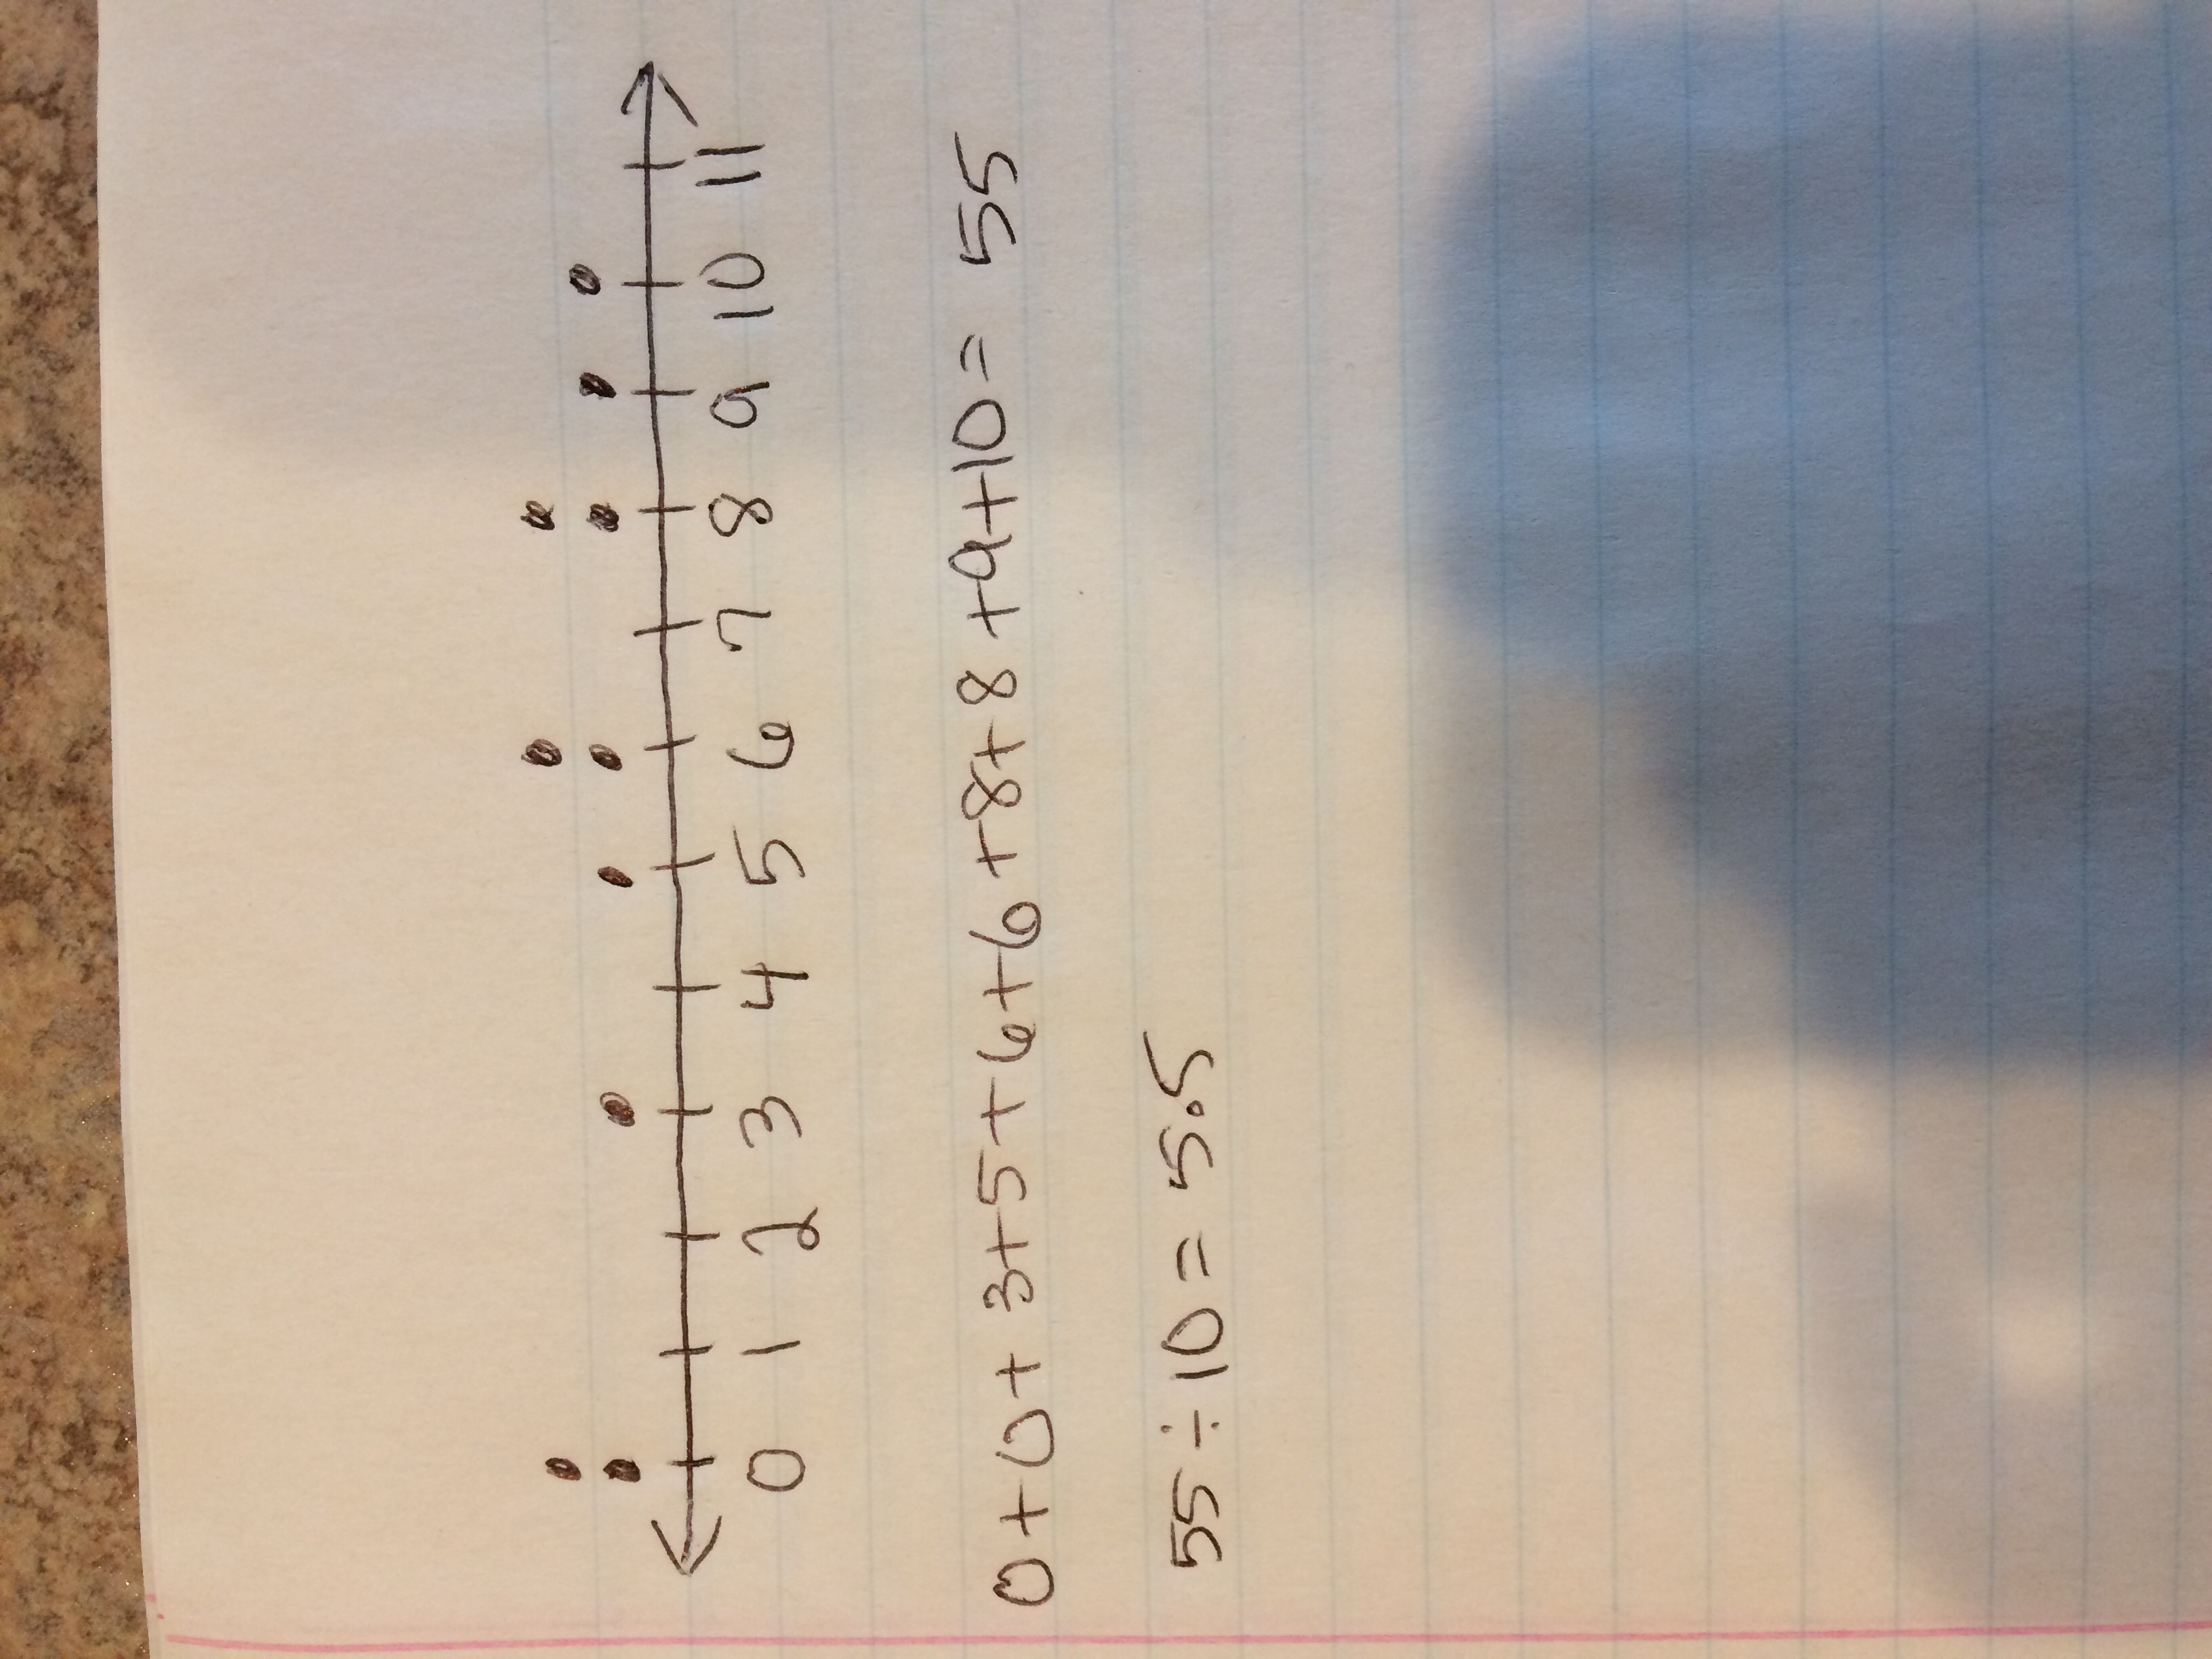 0 1 2 3 4 5 6 7 8 9 10 11
0+0+3+5+6+6+8+8+9+10= 55
55÷10= 5.5